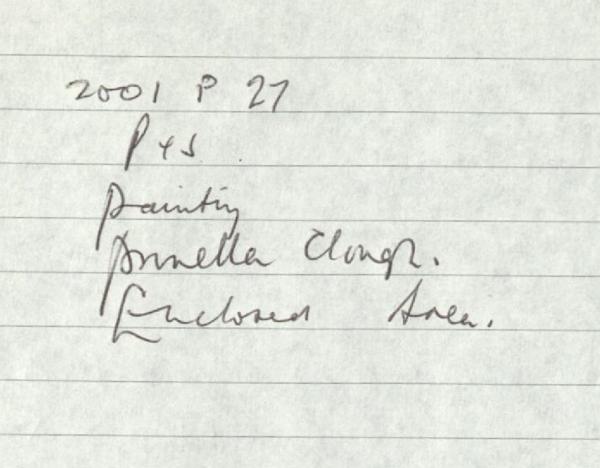 2001 P 27
P + S.
painting
Prunella Clough.
Enclosed Area.